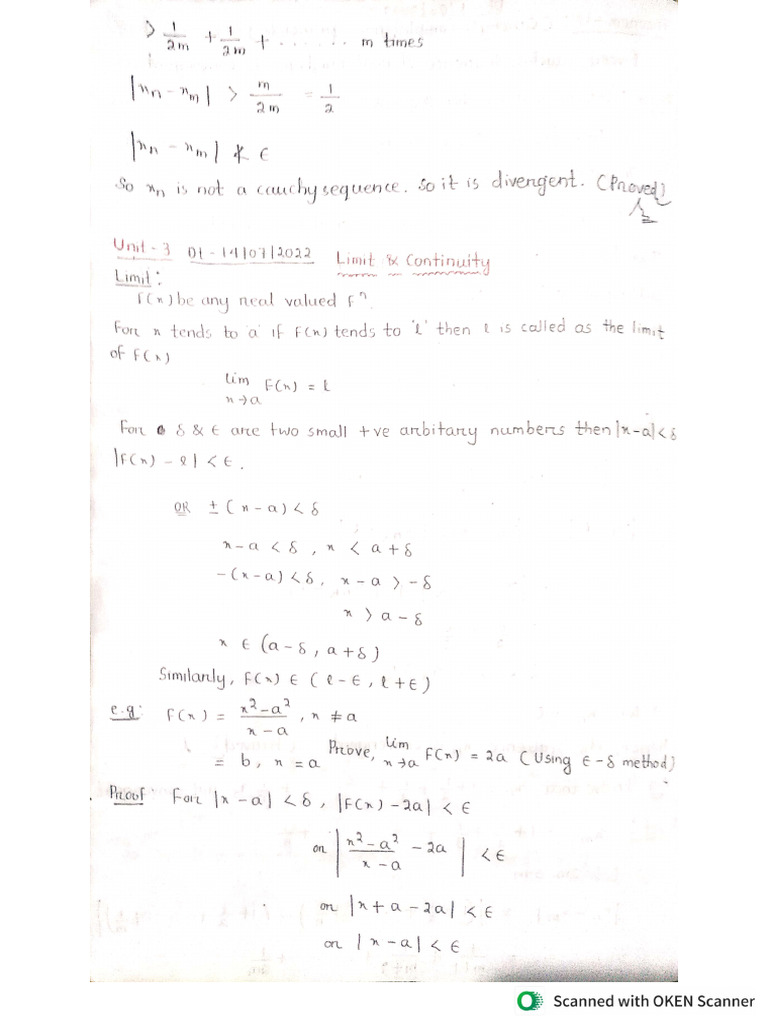 > 1/2m + 1/2m + . . . . . . . m times
|xn - xm| > m/2m = 1/2
|xn - xm| ≮ ε
So xn is not a cauchy sequence. So it is divergent. (Proved)
Unit - 3 Dt - 14/07/2022 Limit & Continuity
Limit:
F(x) be any real valued fⁿ.
For x tends to 'a' if F(x) tends to 'l' then l is called as the limit
of F(x)
lim x→a F(x) = l
For δ & ε are two small +ve arbitary numbers then |x-a|<δ
|F(x) - l| < ε.
OR ± (x - a) < δ
x - a < δ , x < a + δ
-(x-a) < δ, x - a > - δ
x > a - δ
x ∈ (a - δ, a + δ)
Similarly, F(x) ∈ (l - ε, l + ε)
e.g: F(x) = x²-a²/x-a , x ≠ a
= b, x = a Prove, lim x→a F(x) = 2a (Using ε-δ method)
Proof For |x - a| < δ, |F(x) - 2a| < ε
or |x²-a²/x-a - 2a| < ε
or |x + a - 2a| < ε
or |x - a| < ε
Scanned with OKEN Scanner